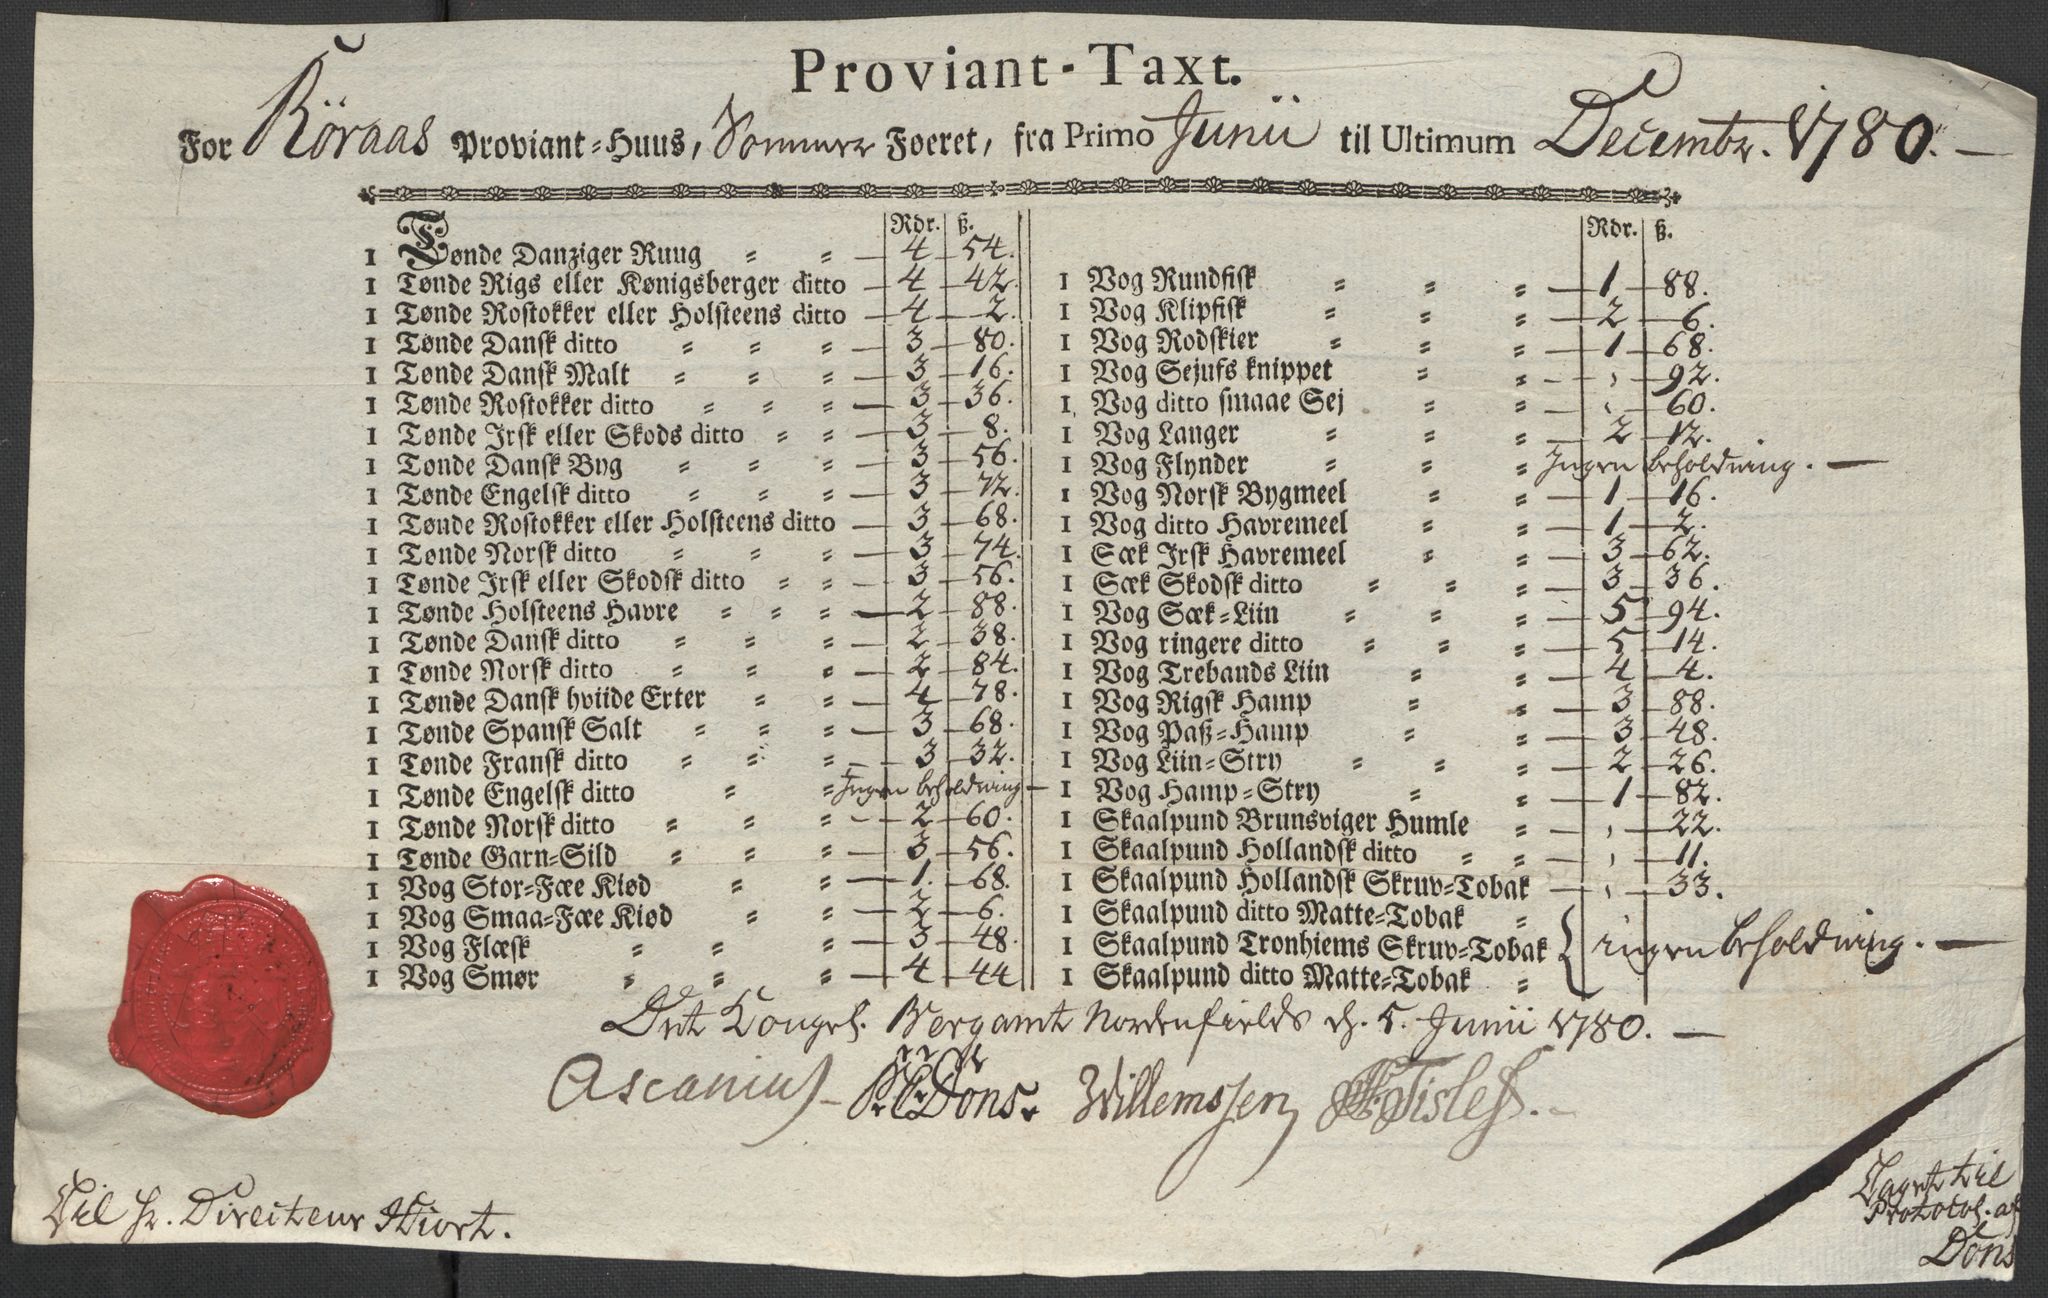 Proviant-Taxt.
For Röraas Proviant-Huus, Sommer Foeret, fra Primo Junii til Ultimum Decembr. 1780.
Rdr. ß.
1 Tønde Danziger Ruug 4 54.
1 Tønde Rigs eller Kønigsberger ditto 4 42.
1 Tønde Rostokker eller Holsteens ditto 4 2.
1 Tønde Dansk ditto 3 80.
1 Tønde Dansk Malt 3 16.
1 Tønde Rostokker ditto 3 36.
1 Tønde Irsk eller Skods ditto 3 8.
1 Tønde Dansk Byg 3 56.
1 Tønde Engelsk ditto 3 72.
1 Tønde Rostokker eller Holsteens ditto 3 68.
1 Tønde Norsk ditto 3 74.
1 Tønde Irsk eller Skodsk ditto 3 56.
1 Tønde Holsteens Havre 2 88.
1 Tønde Dansk ditto 2 38.
1 Tønde Norsk ditto 2 84.
1 Tønde Dansk hviide Erter 4 78.
1 Tønde Spansk Salt 3 68.
1 Tønde Fransk ditto 3 32.
1 Tønde Engelsk ditto Ingen beholdning
1 Tønde Norsk ditto 2 60.
1 Tønde Garn-Sild 3 56.
1 Vog Stor-Fæe Kiød 1. 68.
1 Vog Smaa-Fæe Kiød 2 6.
1 Vog Flæsk 3 48.
1 Vog Smør 4 44
Rdr. ß.
1 Vog Rundfisk 1 88.
1 Vog Klipfisk 2 6.
1 Vog Rodskier 1 68.
1 Vog Sejufs knippet , 92.
1 Vog ditto smaae Sej , 60.
1 Vog Langer 2 12.
1 Vog Flynder Ingen beholdning.
1 Vog Norsk Bygmeel 1 16.
1 Vog ditto Havremeel 1 2.
1 Sæk Irsk Havremeel 3 62.
1 Sæk Skodsk ditto 3 36.
1 Vog Sæk-Liin 5 94.
1 Vog ringere ditto 5 14.
1 Vog Trebands Liin 4 4.
1 Vog Rigsk Hamp 3 88.
1 Vog Paß-Hamp 3 48.
1 Vog Liin-Stry 2 26.
1 Vog Hamp-Stry 1 82.
1 Skaalpund Brunsviger Humle , 22.
1 Skaalpund Hollandsk ditto , 11.
1 Skaalpund Hollandsk Skruv-Tobak , 33.
1 Skaalpund ditto Matte-Tobak
1 Skaalpund Tronhiems Skruv-Tobak ingen beholdning.
1 Skaalpund ditto Matte-Tobak
Det Kongel. Bergamt Nordenfields d. 5. Junii 1780.
Ascanius Dons. Willemssen
Til Hr. Directeur Hiort.
Tagt til
Protocol. af
Dons